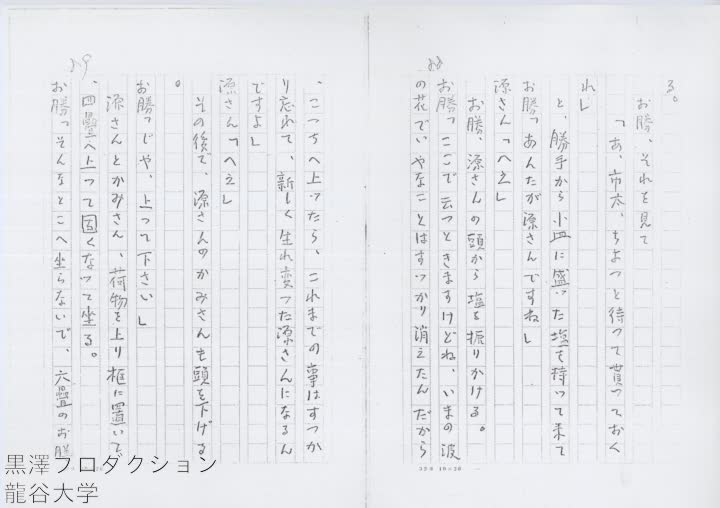 88
る。
お勝、それを見て
「あ、市太、ちよつと待つて貰つておく
れ」
と、勝手から小皿に盛つた塩を持つて来て
お勝「あんたが源さんですね」
源さん「へえ」
お勝、源さんの頭から塩を振りかける。
お勝「ここで云つときますけどね、いまの波
の花でいやなことはすつかり消えたんだから
330 10×20
89
、こつちへ上つたら、これまでの事はすつか
り忘れて、新しく生れ変つた源さんになるん
ですよ」
源さん「へえ」
その後で、源さんのかみさんも頭を下げる
。
お勝「じや、上つて下さい」
源さんとかみさん、荷物を上り框に置いて
、四畳へ上つて固くなつて坐る。
お勝「そんなとこへ坐らないで、六畳のお膳
黒澤プロダクション
龍谷大学